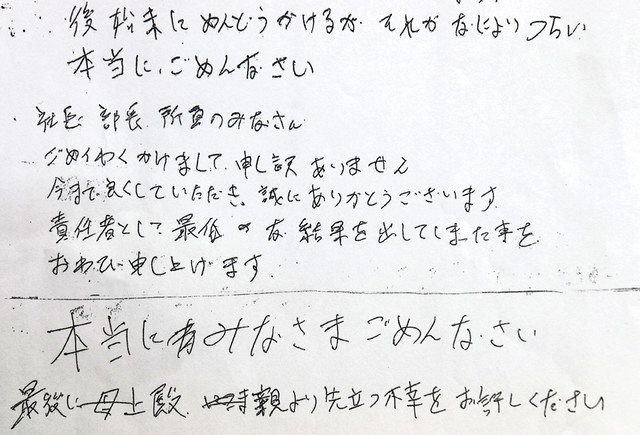 後始末にめんどうかけるが それがなにより つらい
本当に、ごめんなさい
社長 部長 所員のみなさん
ごめいわくかけまして 申し訳ありません
今まで良くしていただき、誠にありがとうございます
責任者として 最低の な 結果を出してしまた事を
おわび申し上げます
本当に みなさま ごめんなさい
最後に 母上殿 親より先立つ不幸を お許しください